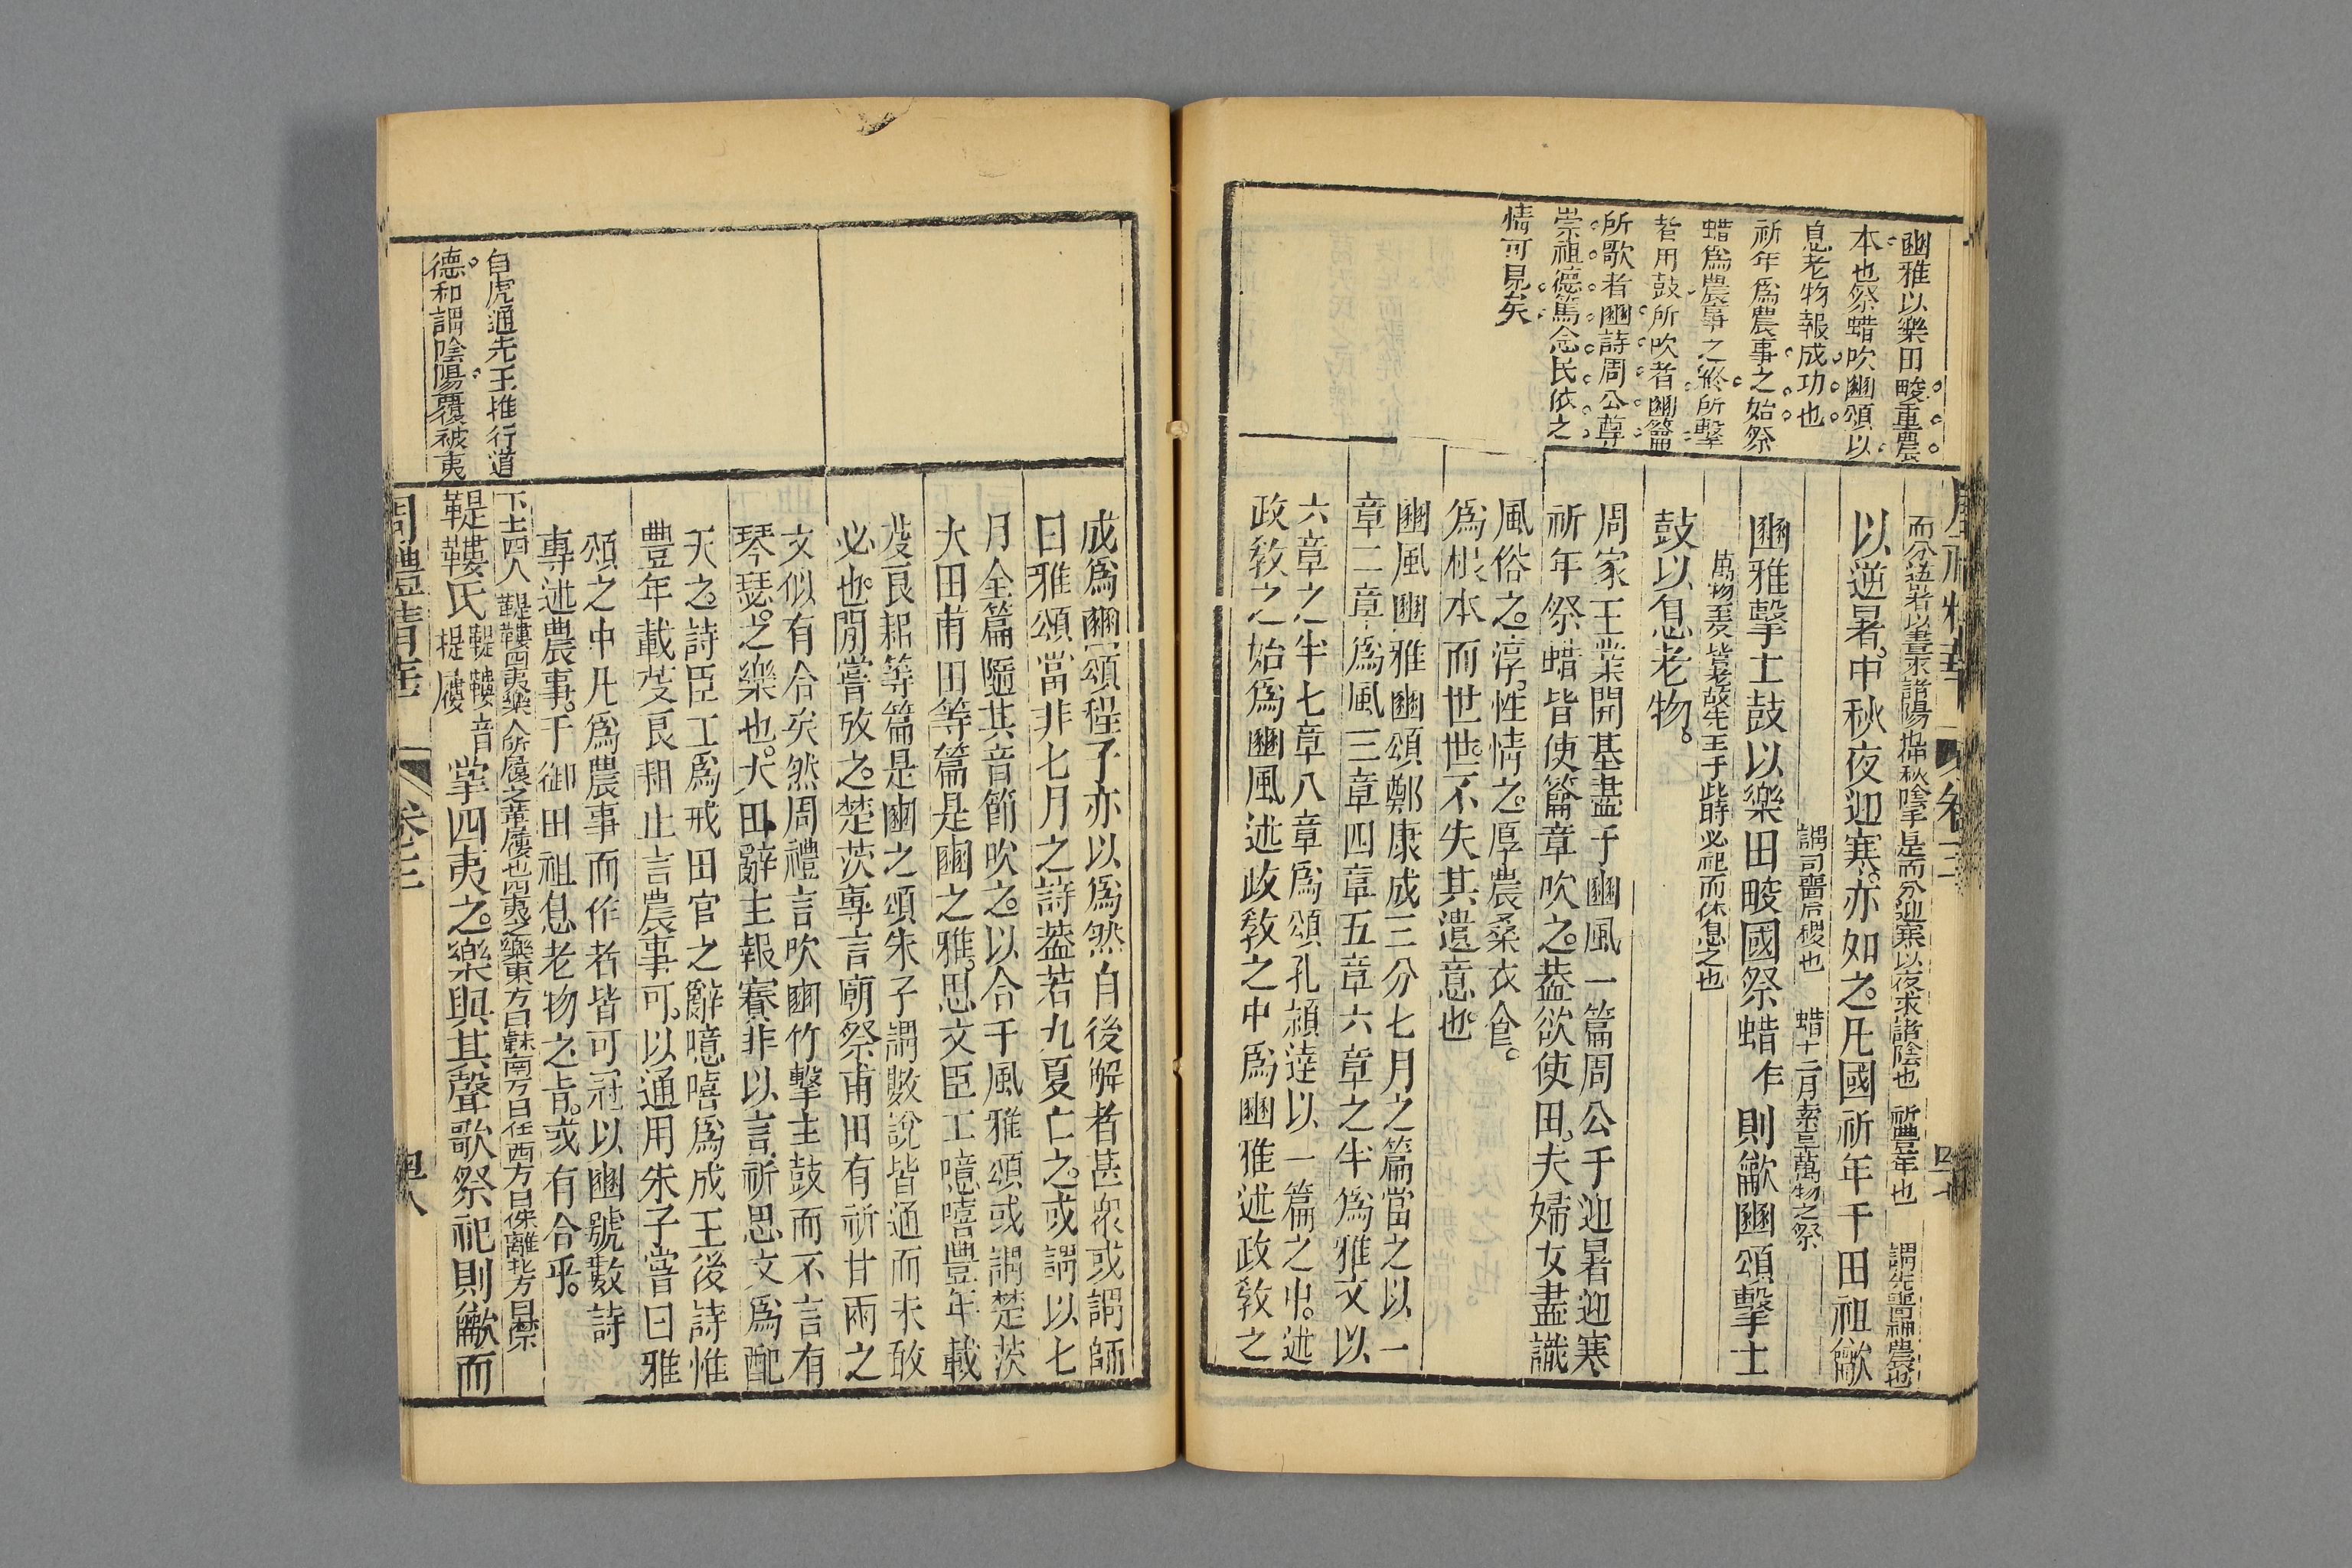 豳雅以樂田畯重農
本也祭蜡吹豳頌以
息老物報成功也
祈年爲農事之始祭
蜡爲農事之終所擊
者用鼓所吹者豳籥
所歌者豳詩周公尊
崇祖德篤念民依之
情可見矣
周禮精華 卷三
而分迎暑以晝求諸陽也仲秋陰于是而分迎寒以夜求諸陰也 祈豐年也 謂先嗇神農也
以逆暑中秋夜迎寒亦如之凡國祈年于田祖龡
謂司嗇后稷也 蜡十二月索享萬物之祭
豳雅擊土鼓以樂田畯國祭蜡乍則龡豳頌擊土
萬物至是皆老故先王于此時必祀而休息之也
鼓以息老物
周家王業開基盡于豳風一篇周公于迎暑迎寒
祈年祭蜡皆使籥章吹之葢欲使田夫婦女盡識
風俗之淳性情之厚農桑衣食
爲根本而世世不失其遺意也
豳風豳雅豳頌鄭康成三分七月之篇當之以一
章二章爲風三章四章五章六章之半爲雅又以
六章之半七章八章爲頌孔頴達以一篇之中述
政敎之始爲豳風述政敎之中爲豳雅述政敎之
成爲豳頌程子亦以爲然自後解者甚衆或謂師
曰雅頌當非七月之詩葢若九夏亡之或謂以七
月全篇隨其音節吹之以合于風雅頌或謂楚茨
大田甫田等篇是豳之雅思文臣工噫嘻豐年載
芟良耜等篇是豳之頌朱子謂數說皆通而未敢
必也閒嘗攷之楚茨專言廟祭甫田有祈甘雨之
文似有合矣然周禮言吹豳竹擊土鼓而不言有
琴瑟之樂也大田辭主報賽非以言祈思文爲配
天之詩臣工爲戒田官之辭噫嘻爲成王後詩惟
豐年載芟良耜止言農事可以通用朱子嘗曰雅
頌之中凡爲農事而作者皆可冠以豳號數詩
專述農事于御田祖息老物之旨或有合乎
下士四人 鞮鞻四夷樂人所屨之革屨也四夷之樂東方曰韎南方曰任西方曰侏離北方曰禁
鞮鞻氏 鞮鞻音提屨 掌四夷之樂與其聲歌祭祀則龡而
白虎通先王推行道
德和謂陰陽覆被夷
周禮精華 卷三 四八